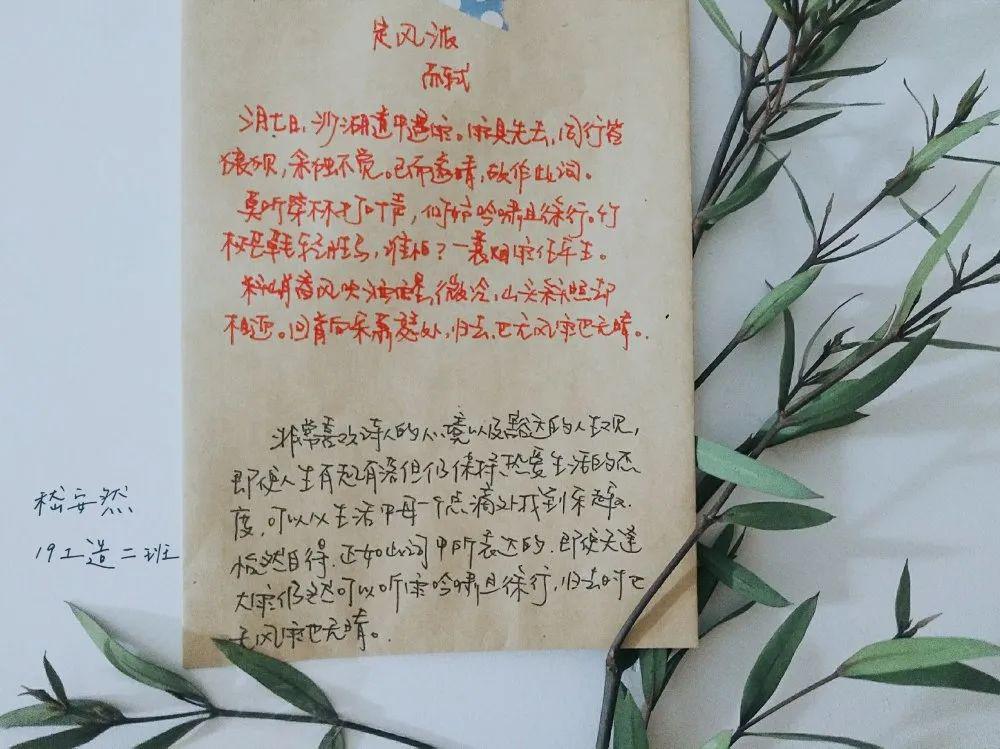 定风波
苏轼
三月七日，沙湖道中遇雨。雨具先去，同行皆
狼狈，余独不觉。已而遂晴，故作此词。
莫听穿林打叶声，何妨吟啸且徐行。竹
杖芒鞋轻胜马，谁怕？一蓑烟雨任平生。
料峭春风吹酒醒，微冷，山头斜照却
相迎。回首向来萧瑟处，归去，也无风雨也无晴。
非常喜欢诗人的心境以及豁达的人生观，
即使人生有起有落但仍保持热爱生活的态
度，可以从生活中每一个点滴处找到乐趣.
悠然自得.正如此词中所表达的.即使天逢
大雨仍然可以听雨吟啸且徐行，归去时也
无风雨也无晴。
嵇安然
19工造二班